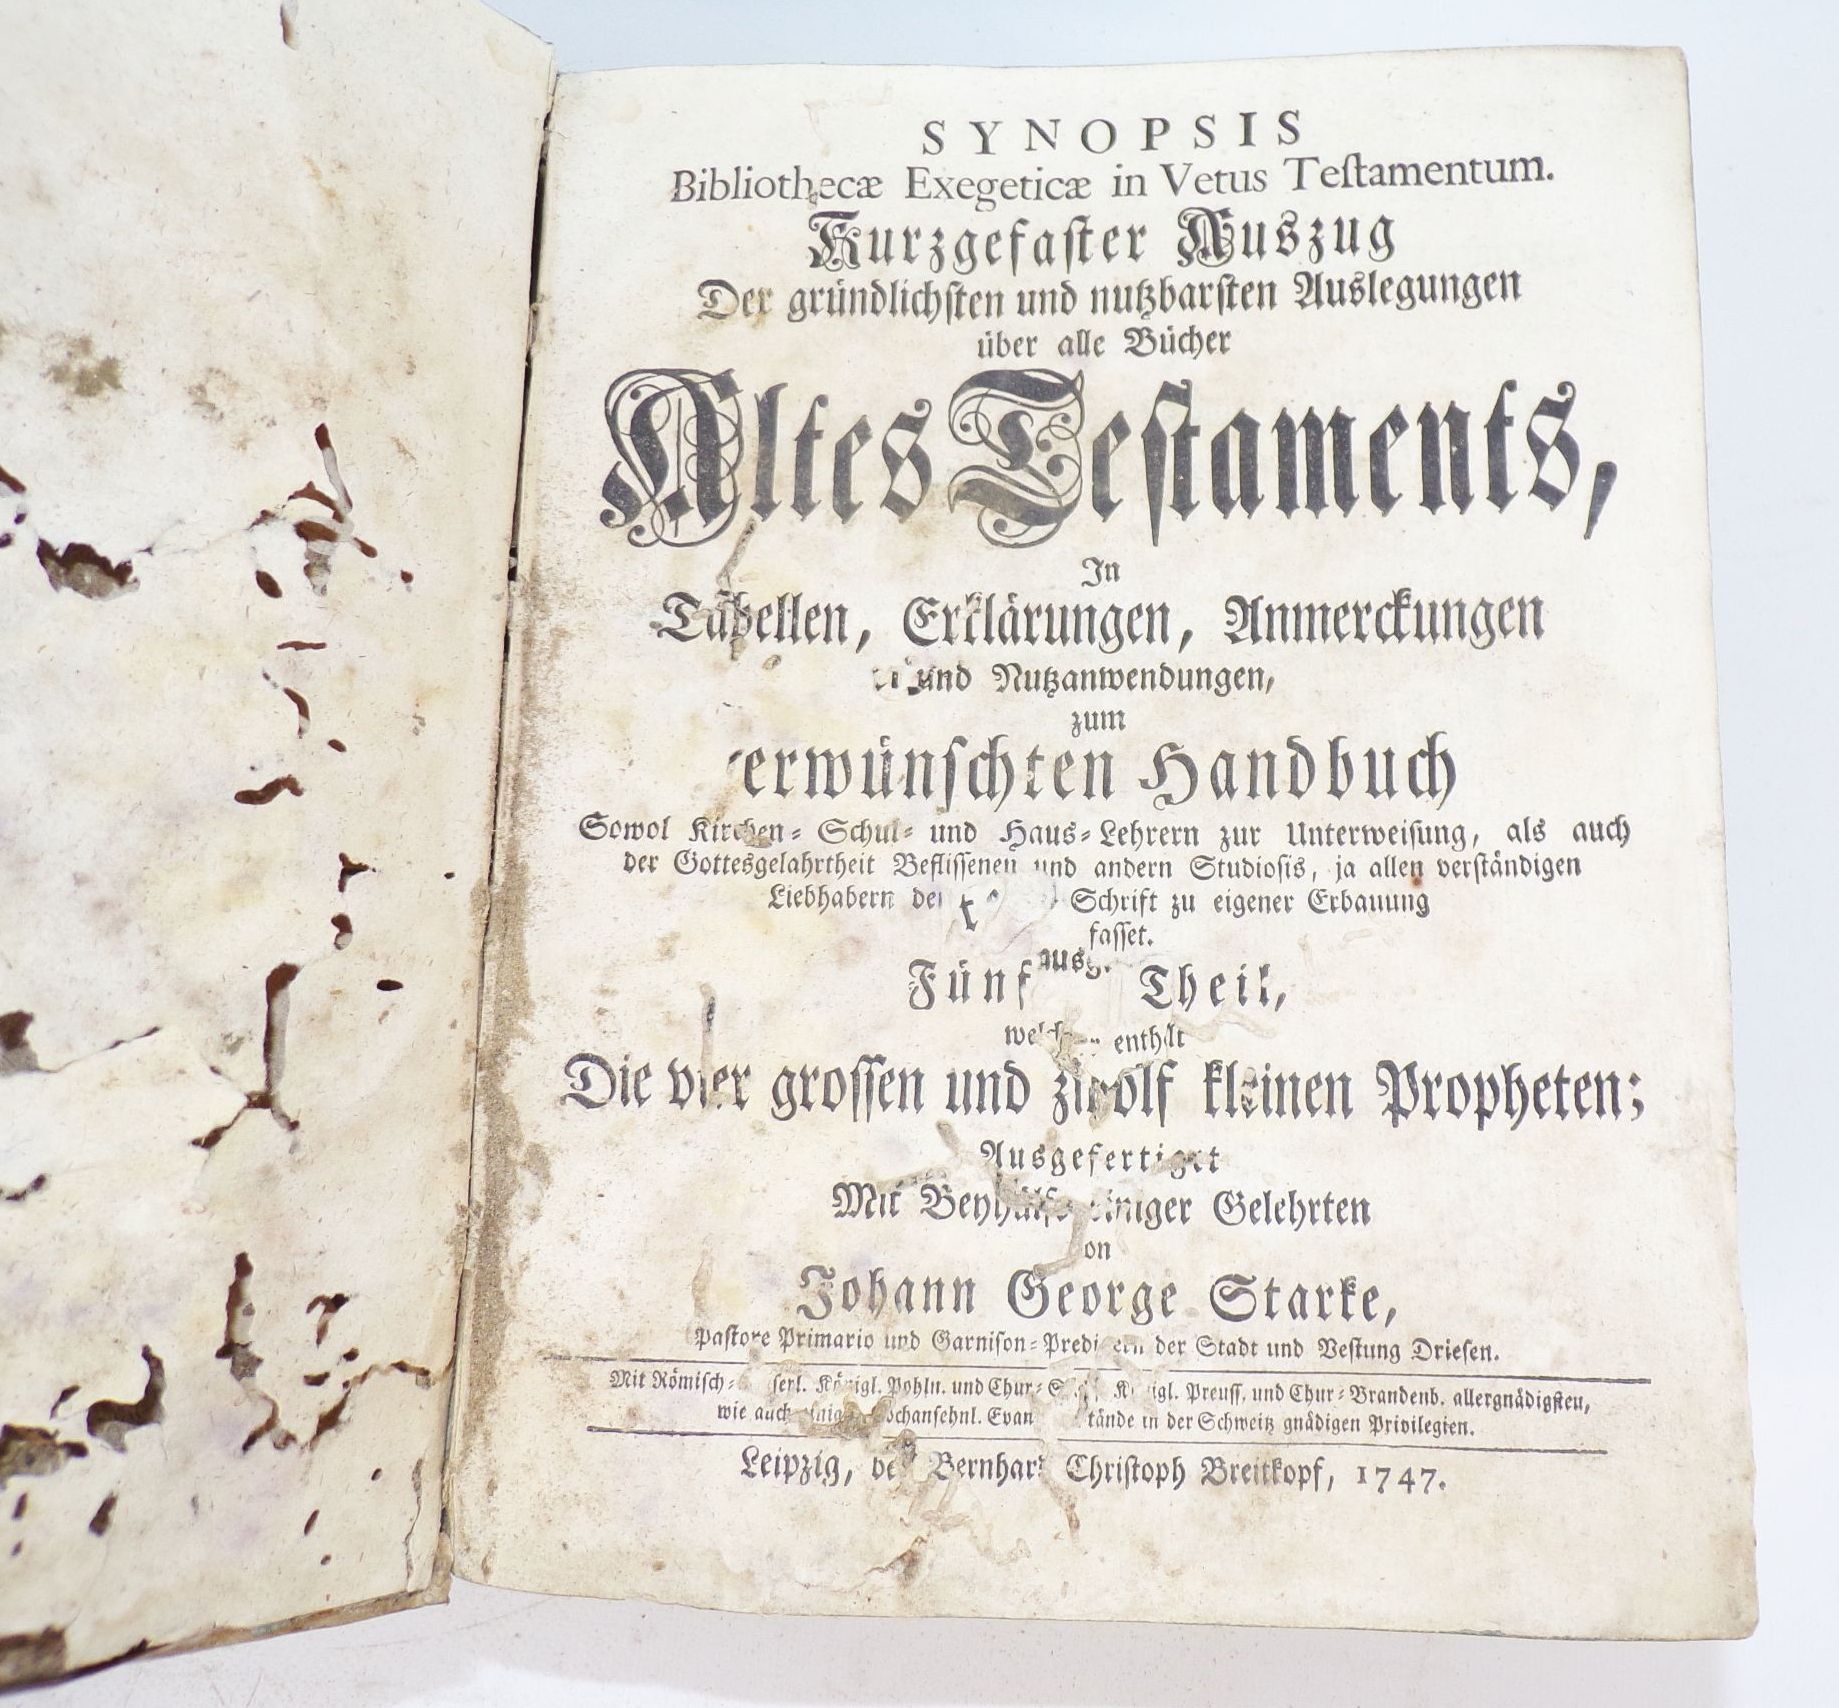 SYNOPSIS
Bibliothecæ Exegeticæ in Vetus Teſtamentum.
Kurzgefaſter Auszug
Der gründlichſten und nutzbarſten Auslegungen
über alle Bücher
Altes Teſtaments,
In
Tabellen, Erklärungen, Anmerckungen
und Nutzanwendungen,
zum
erwünſchten Handbuch
Sowol Kirchen- Schul- und Haus-Lehrern zur Unterweiſung, als auch
der Gottesgelahrtheit Befliſſenen und andern Studioſis, ja allen verſtändigen
Liebhabern Schrift zu eigener Erbauung
faſſet.
Fünf Theil,
enthält
Die vier groſſen und zwölf kleinen Propheten;
Ausgefertiget
Mit Beyhülfe einiger Gelehrten
Johann George Starke,
Paſtore Primario und Garniſon-Predigern der Stadt und Veſtung Drieſen.
Mit Römiſch- Königl. Pohln. und Chur- Königl. Preuſſ. und Chur-Brandenb. allergnädigſten,
wie auch Evan in der Schweitz gnädigen Privilegien.
Leipzig, Bernhard Chriſtoph Breitkopf, 1747.